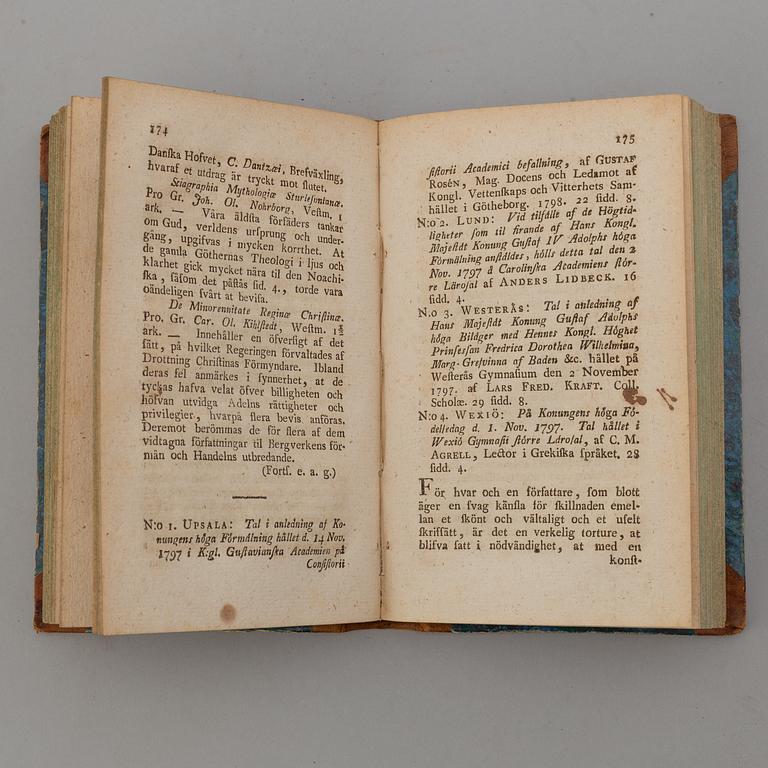 174
Danſka Hofvet, C. Dantzæi, Brefväxling,
hvaraf et utdrag är tryckt mot ſlutet.
Sciagraphia Mythologiæ Sturleſonianæ.
Pro Gr. Joh. Ol. Nohrborg, Veſtm. 1
ark. — Våra äldſta förfäders tankar
om Gud, verldens urſprung och under-
gång, upgifvas i mycken korrthet. At
de gamla Göthernas Theologi i ljus och
klarhet gick mycket nära til den Noachi-
ſka, ſåſom det påſtås ſid. 4., torde vara
oändeligen ſvårt at beviſa.
De Minorennitate Reginæ Chriſtinæ.
Pro. Gr. Car. Ol. Kihlſtedt, Weſtm. 1½
ark. — Innehåller en öfverſigt af det
ſätt, på hvilket Regeringen förvaltades af
Drottning Chriſtinas Förmyndare. Ibland
deras fel anmärkes i ſynnerhet, at de
tyckas hafva velat öfver billigheten och
höfvan utvidga Adelns rättigheter och
privilegier, hvarpå flera bevis anföras.
Deremot berömmas de för flera af dem
vidtagna författningar til Bergverkens för-
mån och Handelns utbredande.
(Fortſ. e. a. g.)
N:o 1. UPSALA: Tal i anledning af Ko-
nungens höga Förmälning hållet d. 14 Nov.
1797 i K:gl. Guſtavianſka Academien på
Conſiſtorii
175
ſiſtorii Academici befallning, af GUSTAF
ROSÉN, Mag. Docens och Ledamot af
Kongl. Vettenſkaps och Vitterhets Sam-
hället i Götheborg. 1798. 22 ſidd. 8.
N:o 2. LUND: Vid tilfälle af de Högtid-
ligheter ſom til firande af Hans Kongl.
Majeſtät Konung Guſtaf IV Adolphs höga
Förmälning anſtäldes, hölls detta tal den 2
Nov. 1797 å Carolinſka Academiens ſtör-
re Läroſal af ANDERS LIDBECK. 16
ſidd. 4.
N:o 3. WESTERÅS: Tal i anledning af
Hans Majeſtät Konung Guſtaf Adolphs
höga Biläger med Hennes Kongl. Höghet
Prinſeſſan Fredrica Dorothea Wilhelmina,
Marg-Grefvinna af Baden &c. hållet på
Weſterås Gymnaſium den 2 November
1797. af LARS FRED. KRAFT. Coll.
Scholæ. 29 ſidd. 8.
N:o 4. WEXIÖ: På Konungens höga Fö-
delſedag d. 1. Nov. 1797. Tal hållet i
Wexiö Gymnaſii ſtörre Läroſal, af C. M.
AGRELL, Lector i Grekiſka ſpråket. 28
ſidd. 4.
För hvar och en författare, ſom blott
äger en ſvag känſla för ſkillnaden emel-
lan et ſkönt och vältaligt och et uſelt
ſkrifſätt, är det en verkelig torture, at
blifva ſatt i nödvändighet, at med en
konſt-